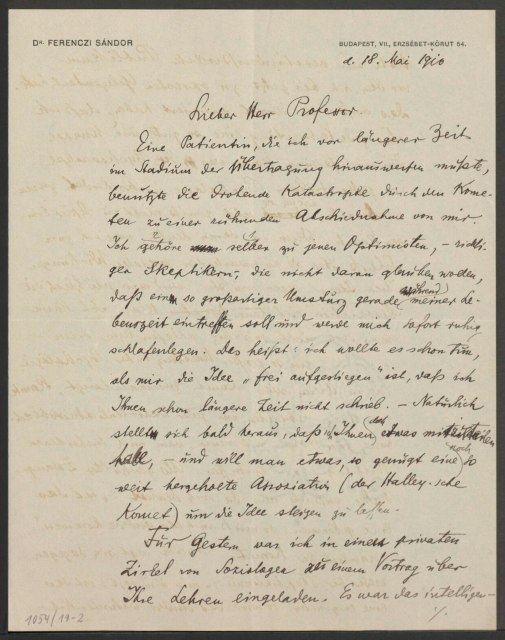 Dr. FERENCZI SÁNDOR
BUDAPEST, VII., ERZSÉBET-KÖRUT 54.
d. 18. Mai 1910
Lieber Herr Professor.
Eine Patientin, die ich vor längerer Zeit
im Stadium der Übertragung hinauswerfen mußte,
benutzte die drohende Katastrophe durch den Kome-
ten zu einer rührenden Abschiednahme von mir
Ich gehöre selber zu jenen Optimisten, – richti-
ger Skeptikern, die nicht daran glauben wollen,
daß ein so großartiger Umsturz gerade während meiner Le-
benszeit eintreffen soll und werde mich sofort ruhig
schlafenlegen. Das heißt: ich wollte es schon tun,
als mir die Idee „frei aufgestiegen" ist, daß ich
Ihnen schon längere Zeit nicht schrieb. – Natürlich
stellte sich bald heraus, daß ich Ihnen doch etwas mitzuteilen
habe, – und will man etwas, so genügt eine noch so
weit hergeholte Assoziation (der Halley-sche
Komet) um die Idee steigen zu lassen.
Für Gestern war ich in einen privaten
Zirkel von Soziologen zu einem Vortrag über
Ihre Lehren eingeladen. Es war das intelligen-
./.
1054/19-2